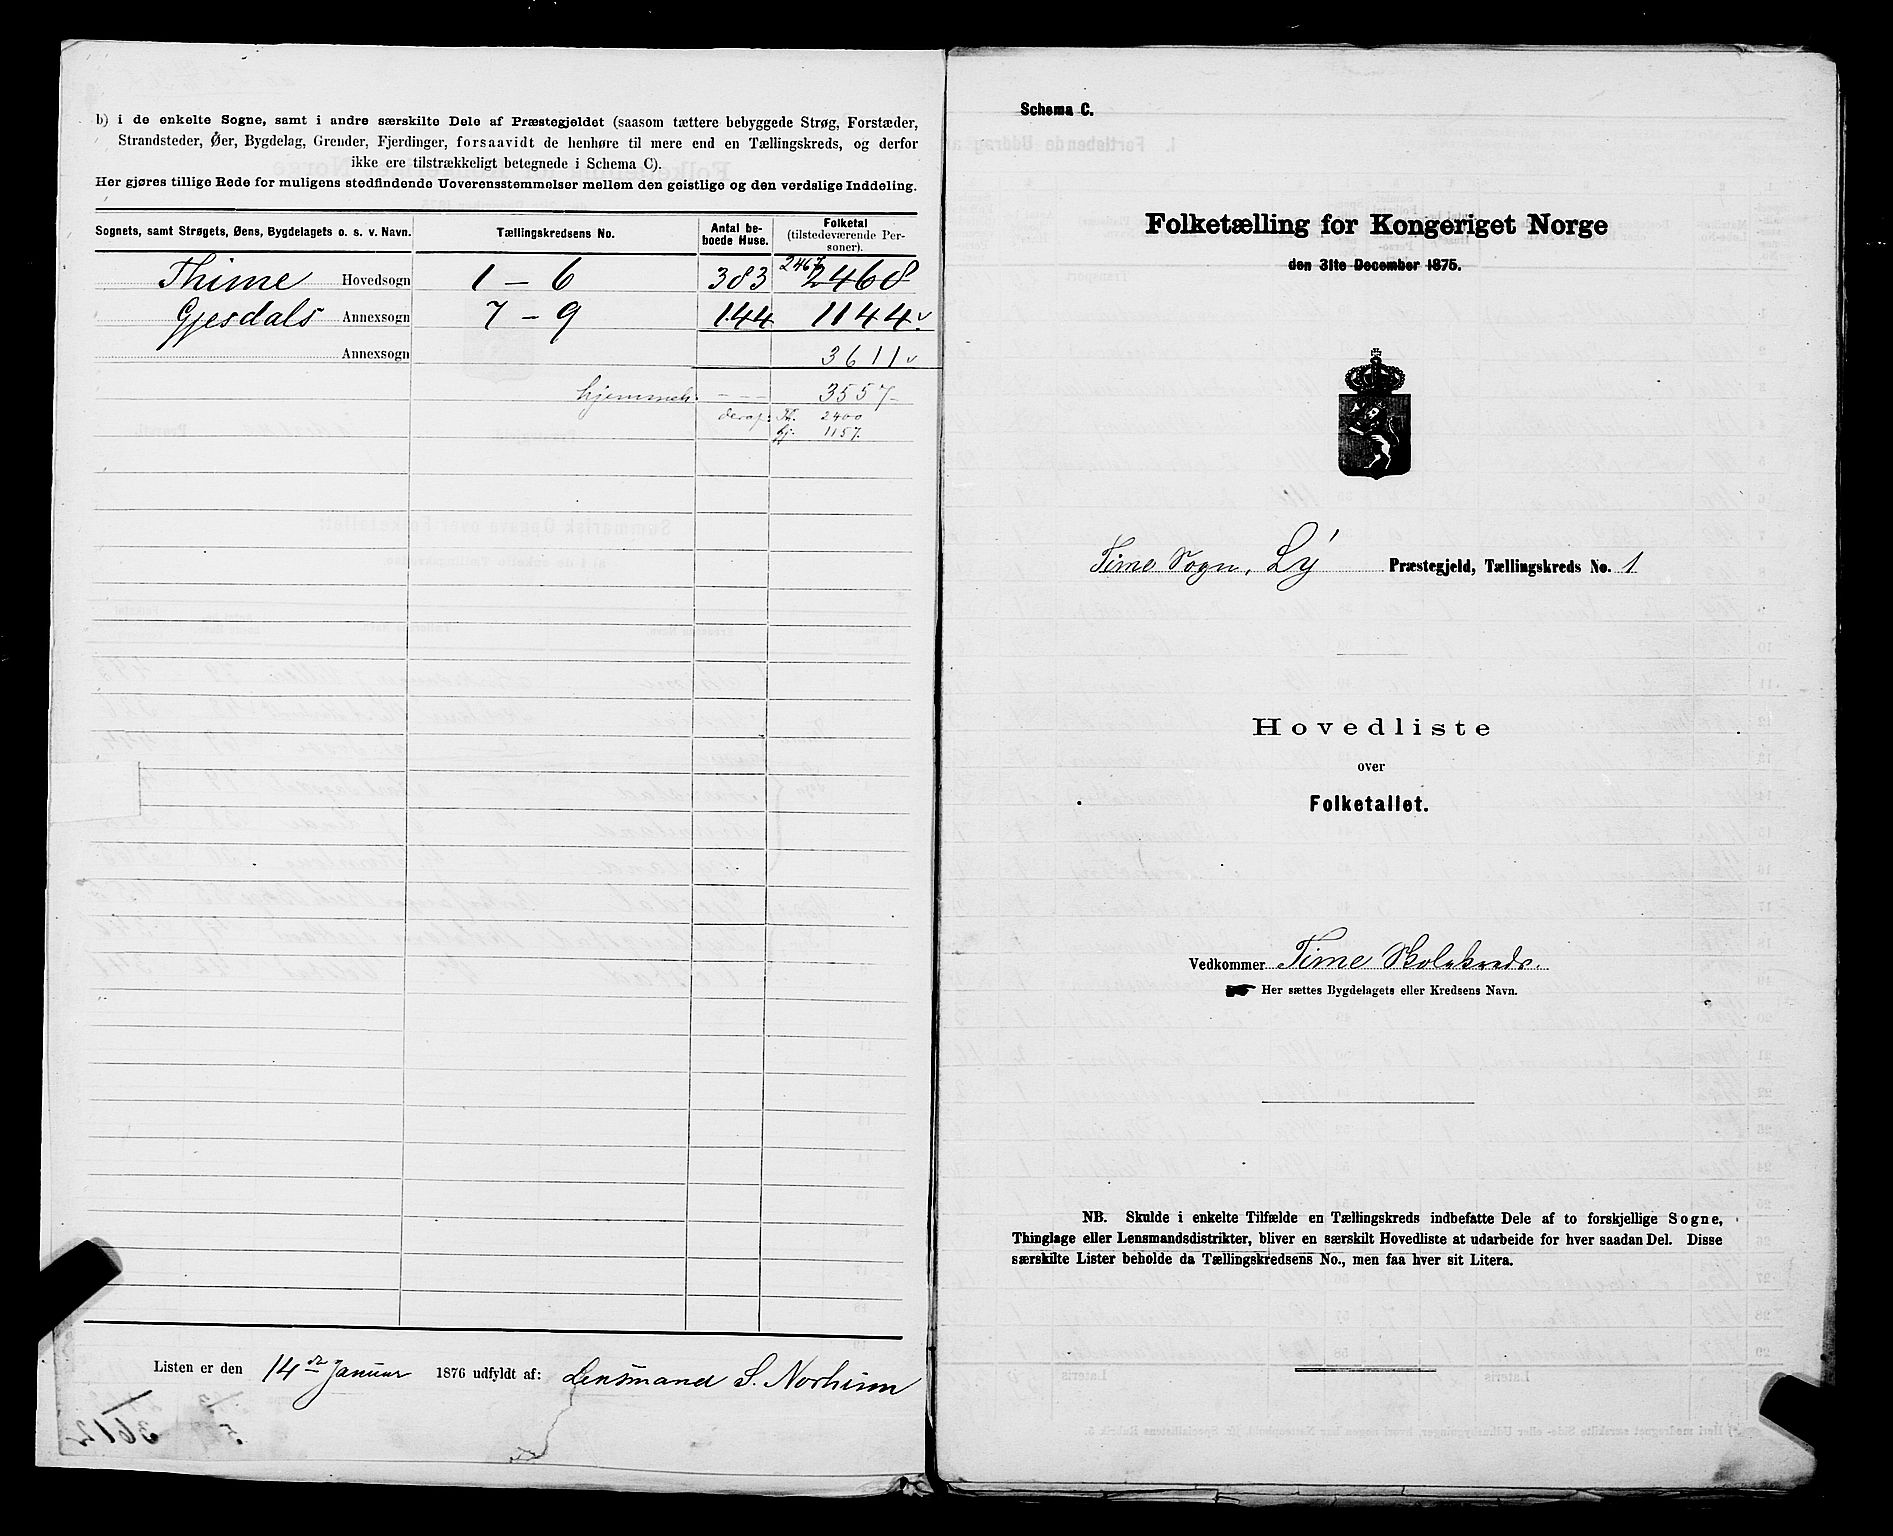 b) i de enkelte Sogne, samt i andre særskilte Dele af Præstegjeldet (saasom tættere bebyggede Strøg, Forstæder,
Strandsteder, Øer, Bygdelag, Grender, Fjerdinger, forsaavidt de henhøre til mere end en Tællingskreds, og derfor
ikke ere tilstrækkeligt betegnede i Schema C).
Her gjøres tillige Rede for muligens stedfindende Uoverensstemmelser mellem den geistlige og den verdslige Inddeling.
Sognets, samt Strøgets, Øens, Bygdelagets o. s. v. Navn. Tællingskredsens No. Antal beboede Huse. Folketal (tilstedeværende Personer).
Thime Hovedsogn 1 - 6 383 2467 2468
Gjesdals Annexsogn 7 - 9 144 1144
Annexsogn 3611
hjemmeh. - - - 3557
deraf: Th. 2400
Gj. 1157.
Listen er den 14de Januar 1876 udfyldt af: Lensmand S. Norheim
3612
Schema C.
Folketælling for Kongeriget Norge
den 31te December 1875.
Time Sogn, Ly Præstegjeld, Tællingskreds No. 1
Hovedliste
over
Folketallet.
Vedkommer Time Skolekreds.
Her sættes Bygdelagets eller Kredsens Navn.
NB. Skulde i enkelte Tilfælde en Tællingskreds indbefatte Dele af to forskjellige Sogne,
Thinglage eller Lensmandsdistrikter, bliver en særskilt Hovedliste at udarbeide for hver saadan Del. Disse
særskilte Lister beholde da Tællingskredsens No., men faa hver sit Litera.